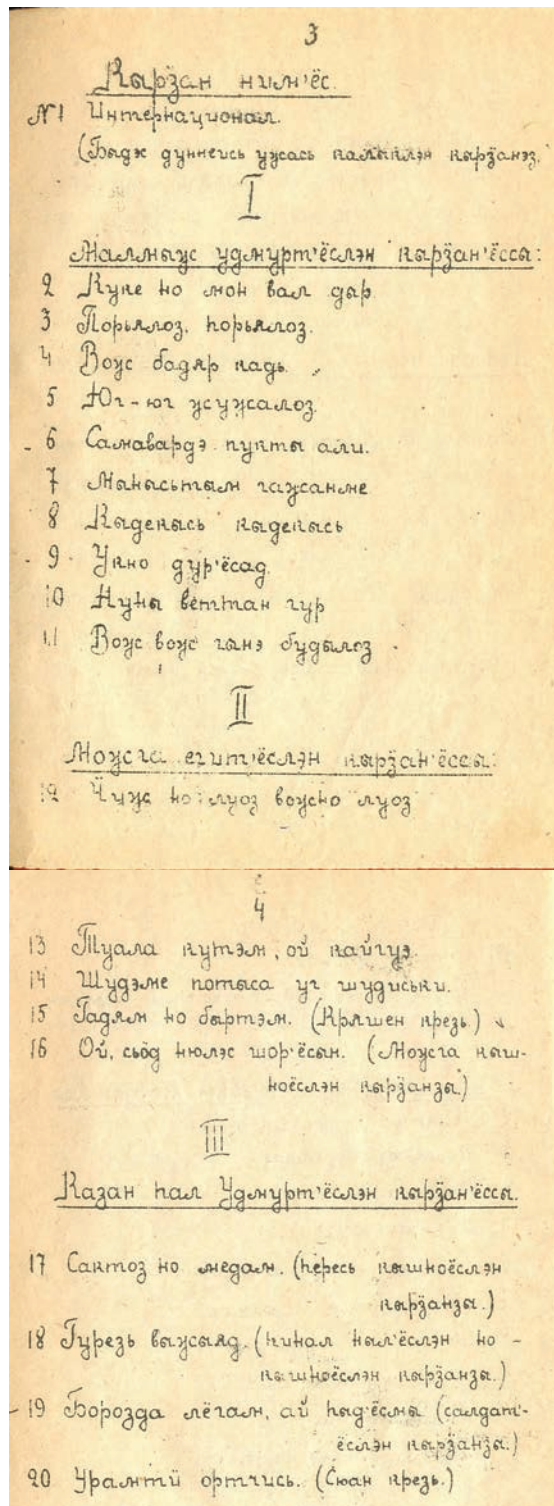 3
Кырӟан ним'ёс.
№1 Интернационал.
(Быдэс дуннеись ужась калыклэн кырӟанэз.
I
Малмыж удмурт'ёслэн кырӟан'ёссы:
2 Куке но мон вал дыр
3 Порьялоз, порьялоз.
4 Вож бадяр кадь.
5 Юг-юг жужалоз.
6 Самавардэ пукты али.
7 Мынысьтым гажанме
8 Кыдекысь кыдекысь
9 Укно дур'ёсад.
10 Нуны веттан гур
11 Вож вож гинэ будылоз
II
Можга егит'ёслэн кырӟан'ёссы:
12 Ӵуж но луоз вож но луоз
4
13 Туала кутэм, ой кайгуэ.
14 Шудэме потыса уг шудиськи.
15 Гадям но быртэм. (Кряшен крезь.)
16 Ой, сьӧд нюлэс шор'ёсын. (Можга кыш-
ноёслэн кырӟанзы.)
III
Казан пал Удмурт'ёслэн кырӟан'ёссы.
17 Сактоз но медам. (пересь кышноёслэн
кырӟанзы.)
18 Гурезь выжыяд. (пинал ныл'ёслэн но -
кышноёслэн кырӟанзы.)
19 Борозда лёгам, ай пыд'ёсмы (салдат'-
ёслэн кырӟанзы.)
20 Урамтӥ ортчись. (Сюан крезь.)